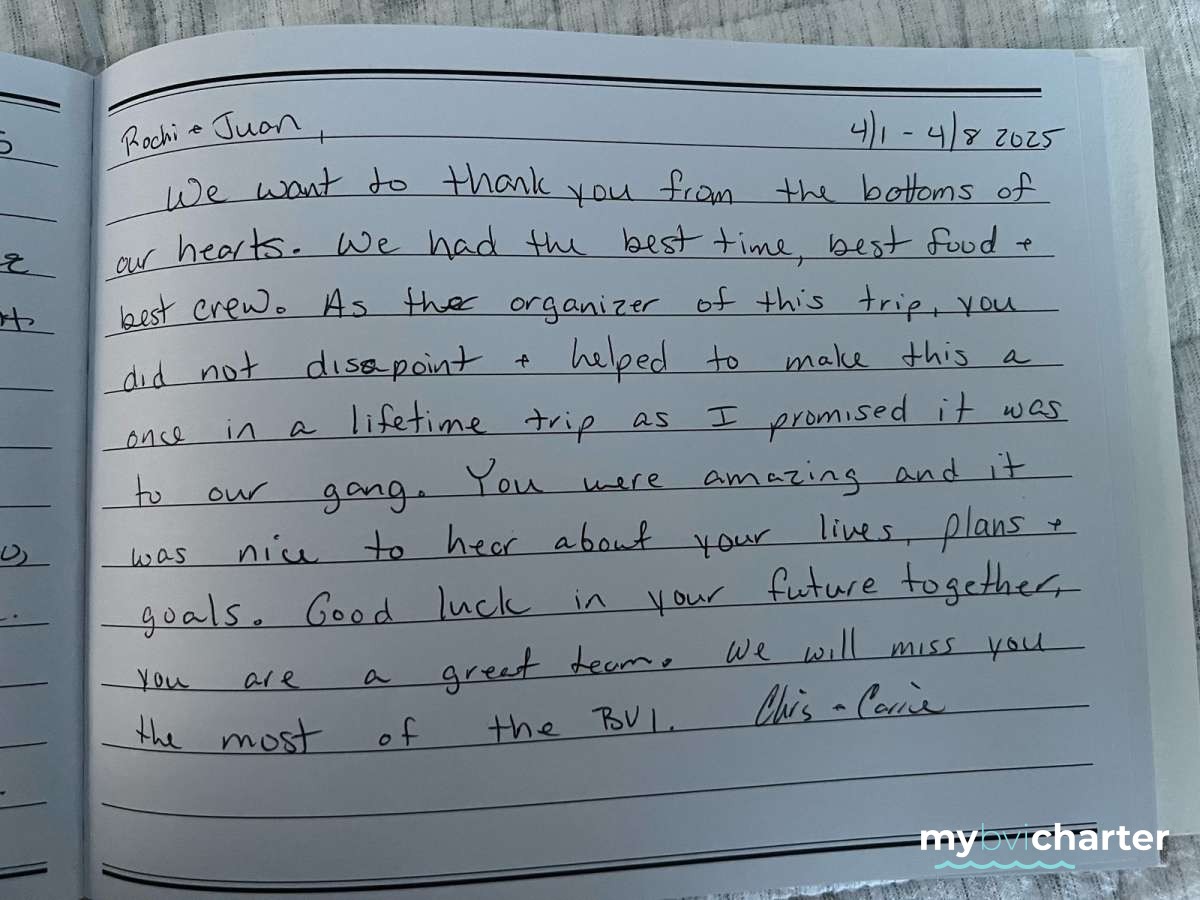 Rochi + Juan, 4/1 - 4/8 2025
We want to thank you from the bottoms of
our hearts. We had the best time, best food +
best crew. As the organizer of this trip, you
did not disapoint + helped to make this a
once in a lifetime trip as I promised it was
to our gang. You were amazing and it
was nice to hear about your lives, plans +
goals. Good luck in your future together,
you are a great team. We will miss you
the most of the BVI. Chis + Carrie
mybvicharter